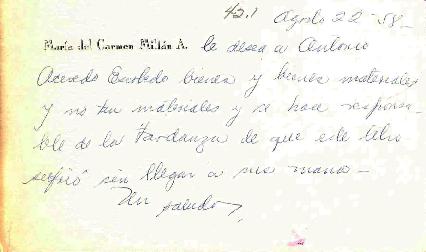 42.1 Agosto 22-58-
María del Carmen Millán A. le desea a Antonio
Acevedo Escobedo bienes y bienes materiales
y no tan materiales y se hace responsa-
ble de la tardanza de que este libro
sufrió sin llegar a sus manos-
Un saludo,